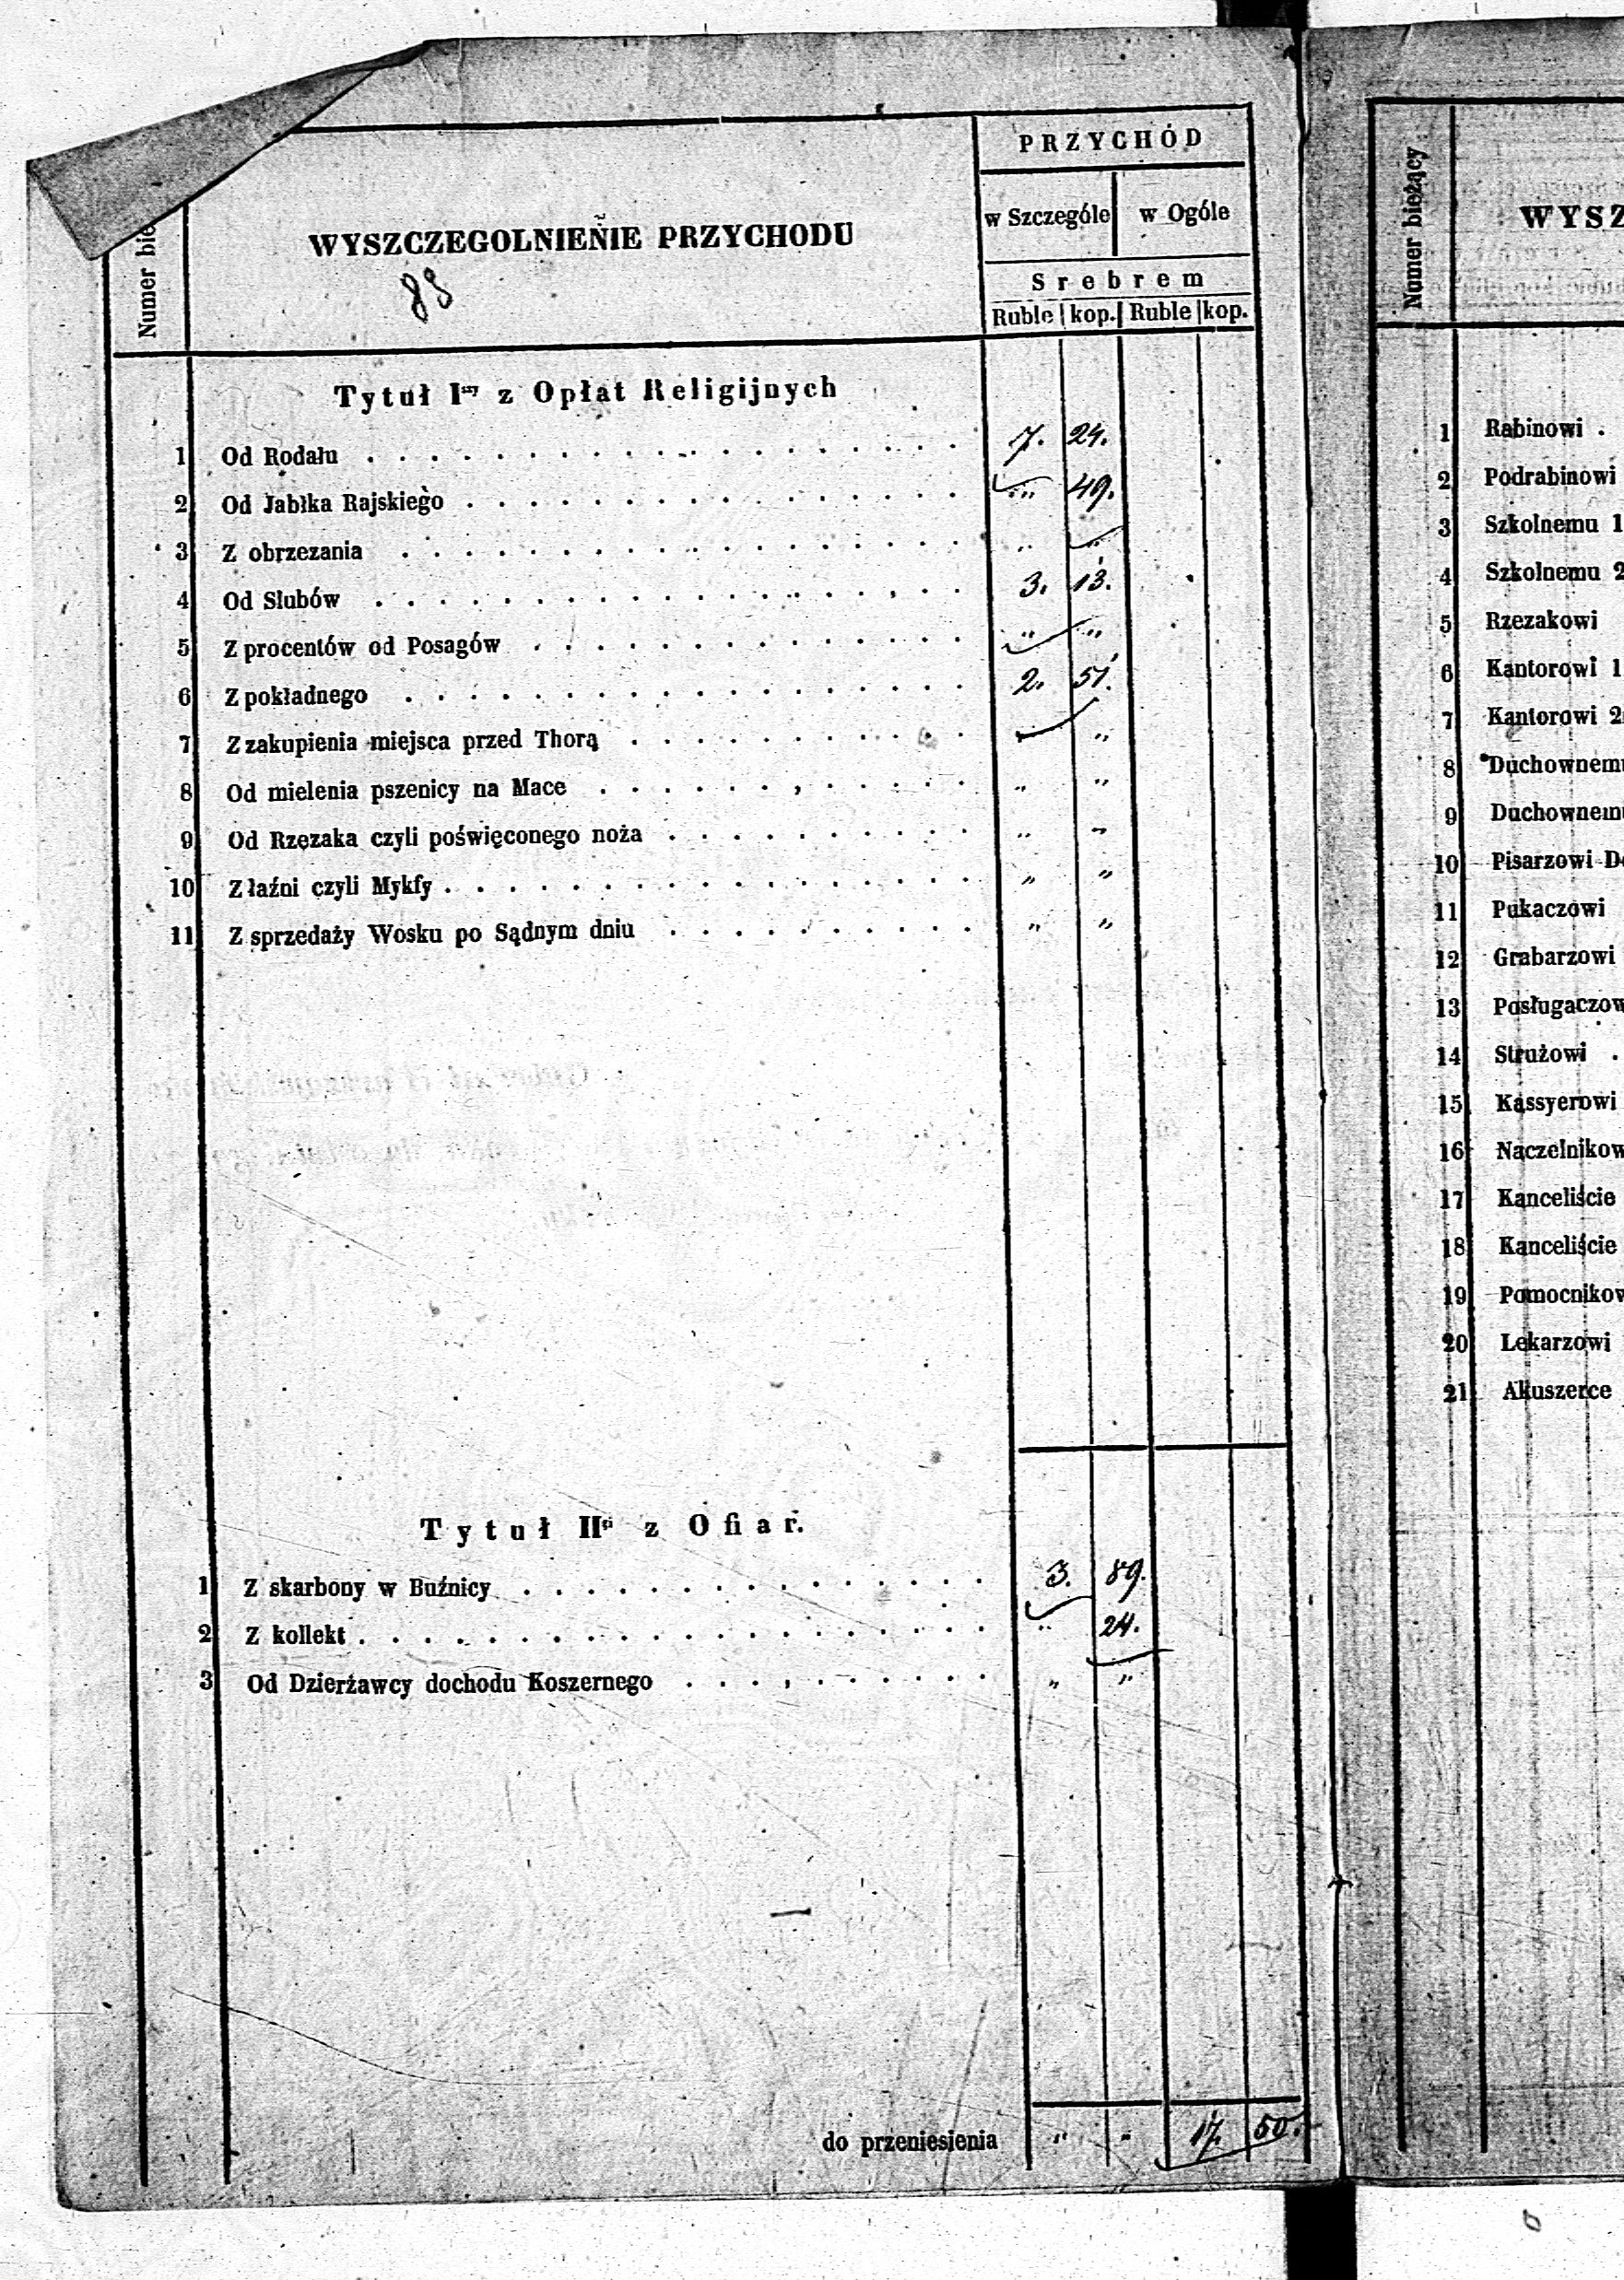 PRZYCHÓD
w Szczególe w Ogóle
WYSZCZEGOLNIENIE PRZYCHODU
88
Srebrem
Ruble kop. Ruble kop.
Numer bie
Tytuł Iszy z Opłat Religijnych
1 Od Rodału . . . . . . . . 7. 24.
2 Od Jabłka Rajskiego . . . . . . . . „ 49.
3 Z obrzezania . . . . . . . . „ „
4 Od Slubów . . . . . . . . 3. 13.
5 Z procentów od Posagów . . . . . . . . „ „
6 Z pokładnego . . . . . . . . 2. 51.
7 Z zakupienia miejsca przed Thorą . . . . . . . . „
8 Od mielenia pszenicy na Mace . . . . . . . . „ „
9 Od Rzęzaka czyli poświęconego noża . . . . . . . . „ „
10 Z łaźni czyli Mykfy . . . . . . . . „ „
11 Z sprzedaży Wosku po Sądnym dniu . . . . . . . . „ „
Tytuł IIgi z Ofiar.
1 Z skarbony w Buźnicy . . . . . . . . 3. 89.
2 Z kollekt . . . . . . . . „ 24.
3 Od Dzierżawcy dochodu Koszernego . . . . . . . . „ „
do przeniesienia „ „ 17. 50.
Numer bieżący
WYSZ
1 Rabinowi .
2 Podrabinowi
3 Szkolnemu 1
4 Szkolnemu 2
5 Rzezakowi
6 Kantorowi 1
7 Kantorowi 2
8 Duchownemu
9 Duchownemu
10 Pisarzowi D
11 Pukaczowi
12 Grabarzowi
13 Posługaczow
14 Strużowi .
15 Kassyerowi
16 Naczelnikow
17 Kanceliście
18 Kanceliście
19 Pomocnikow
20 Lekarzowi
21 Akuszerce